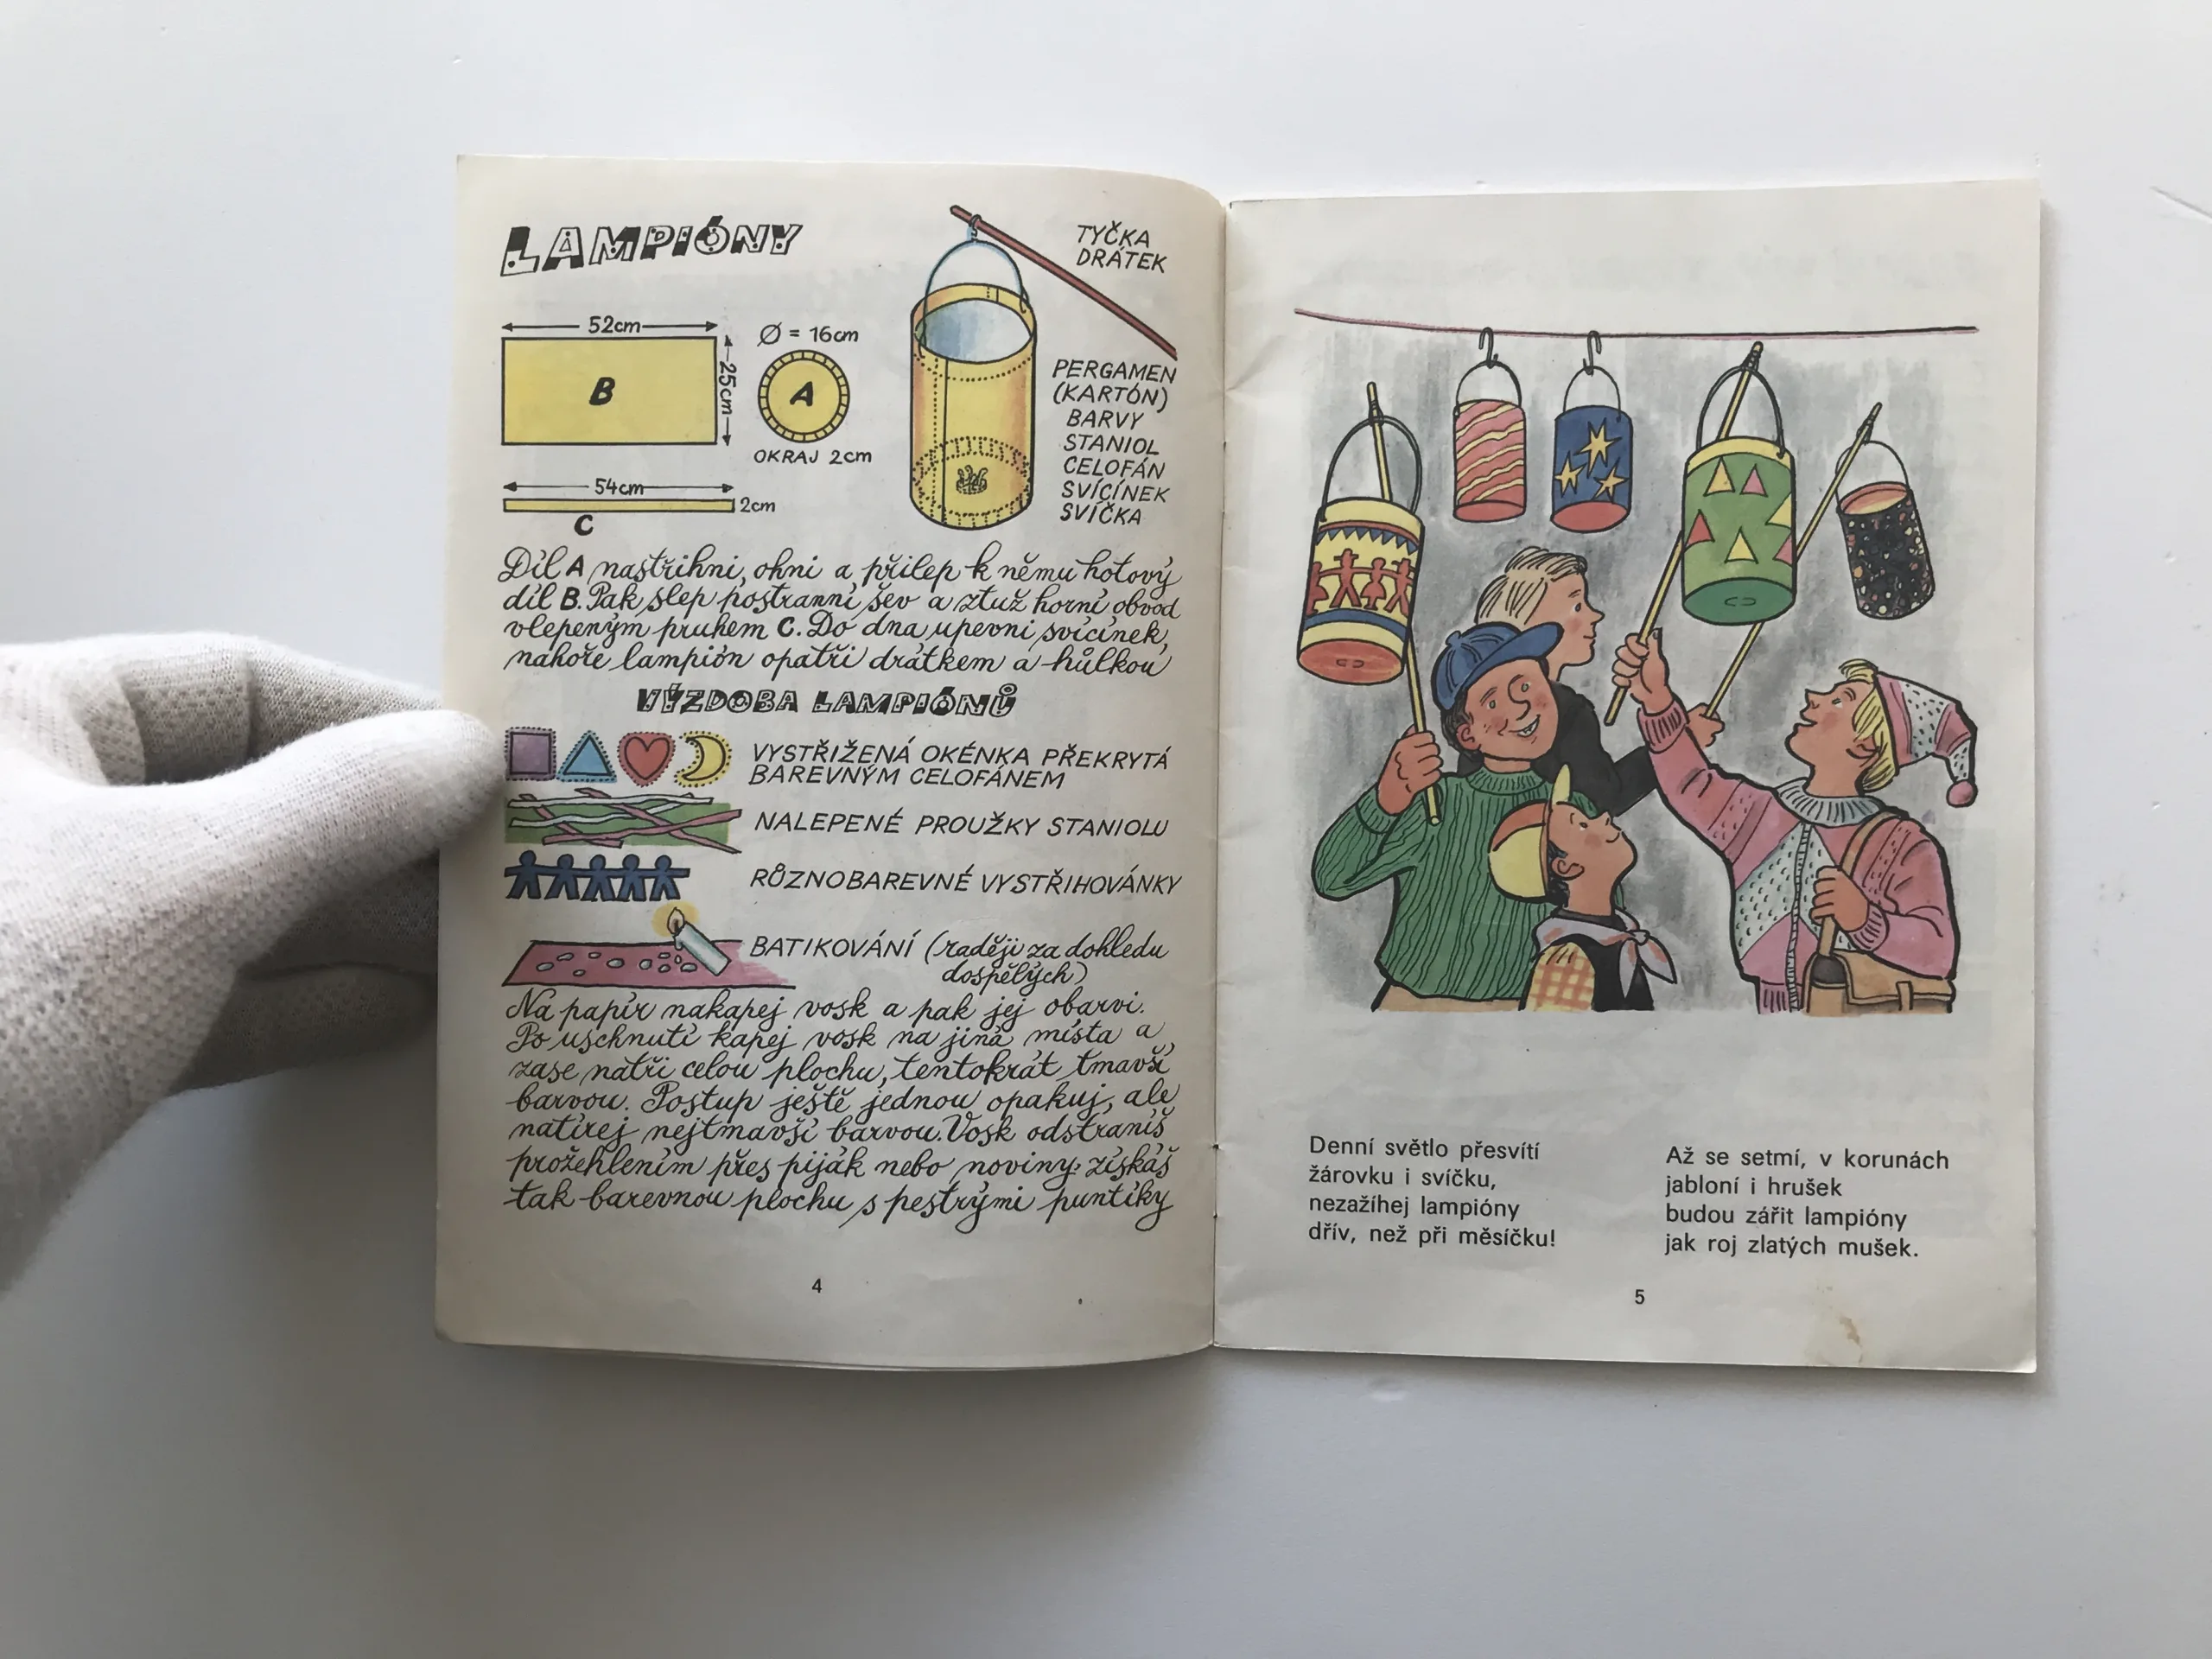 LAMPIÓNY
TYČKA
DRÁTEK
52cm
B
25cm
Ø = 16cm
A
OKRAJ 2cm
54cm
2cm
C
PERGAMEN
(KARTÓN)
BARVY
STANIOL
CELOFÁN
SVÍCÍNEK
SVÍČKA
Díl A nastřihni, ohni a přilep k němu hotový
díl B. Pak slep postranní šev a ztuž horní obvod
vlepeným pruhem C. Do dna upevni svícínek,
nahoře lampión opatři drátkem a hůlkou
VÝZDOBA LAMPIÓNŮ
VYSTŘIŽENÁ OKÉNKA PŘEKRYTÁ
BAREVNÝM CELOFÁNEM
NALEPENÉ PROUŽKY STANIOLU
RŮZNOBAREVNÉ VYSTŘIHOVÁNKY
BATIKOVÁNÍ (raději za dohledu
dospělých)
Na papír nakapej vosk a pak jej obarvi.
Po uschnutí kapej vosk na jiná místa a
zase natři celou plochu, tentokrát tmavší
barvou. Postup ještě jednou opakuj, ale
natírej nejtmavší barvou. Vosk odstraníš
prožehlením přes piják nebo noviny: získáš
tak barevnou plochu s pestrými puntíky
4
Denní světlo přesvítí
žárovku i svíčku,
nezažíhej lampióny
dřív, než při měsíčku!
Až se setmí, v korunách
jabloní i hrušek
budou zářit lampióny
jak roj zlatých mušek.
5